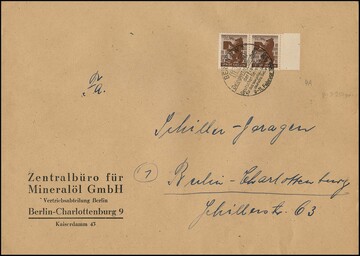 Fa.
Schiller-Garagen
Berlin-Charlottenburg
Schillerstr. 63
1
Zentralbüro für
Mineralöl GmbH
Vertriebsabteilung Berlin
Berlin-Charlottenburg 9
Kaiserdamm 45